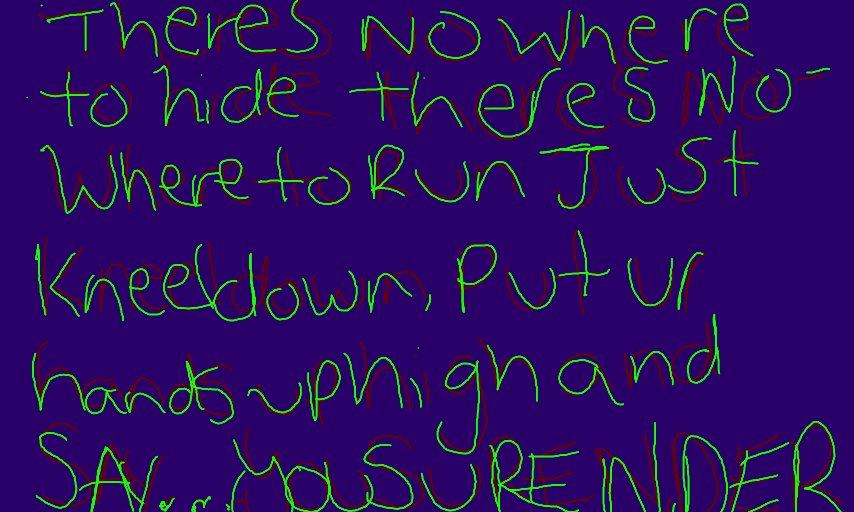 Theres Nowhere
to hide theres No-
where to Run Just
kneel down, Put ur
hands up high and
SAY... you SURENDER